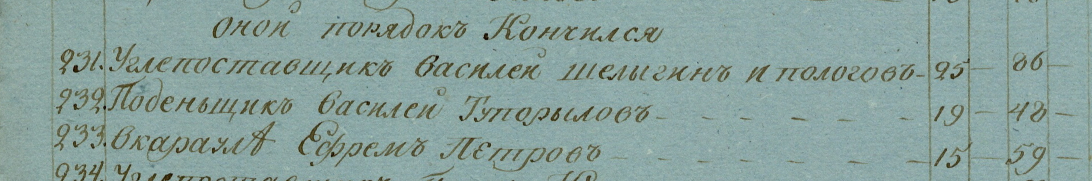 оной порядокъ Кончился
231. Углепоставщикъ василей шелыгинъ и пологовъ - 25 - 86 -
232. Поденьщикъ василей Тупорыловъ - - - - - - 19 - 48 -
233. вкараулѣ Ефремъ Петровъ - - - - - - 15 - 59
234. Углепоставщикъ